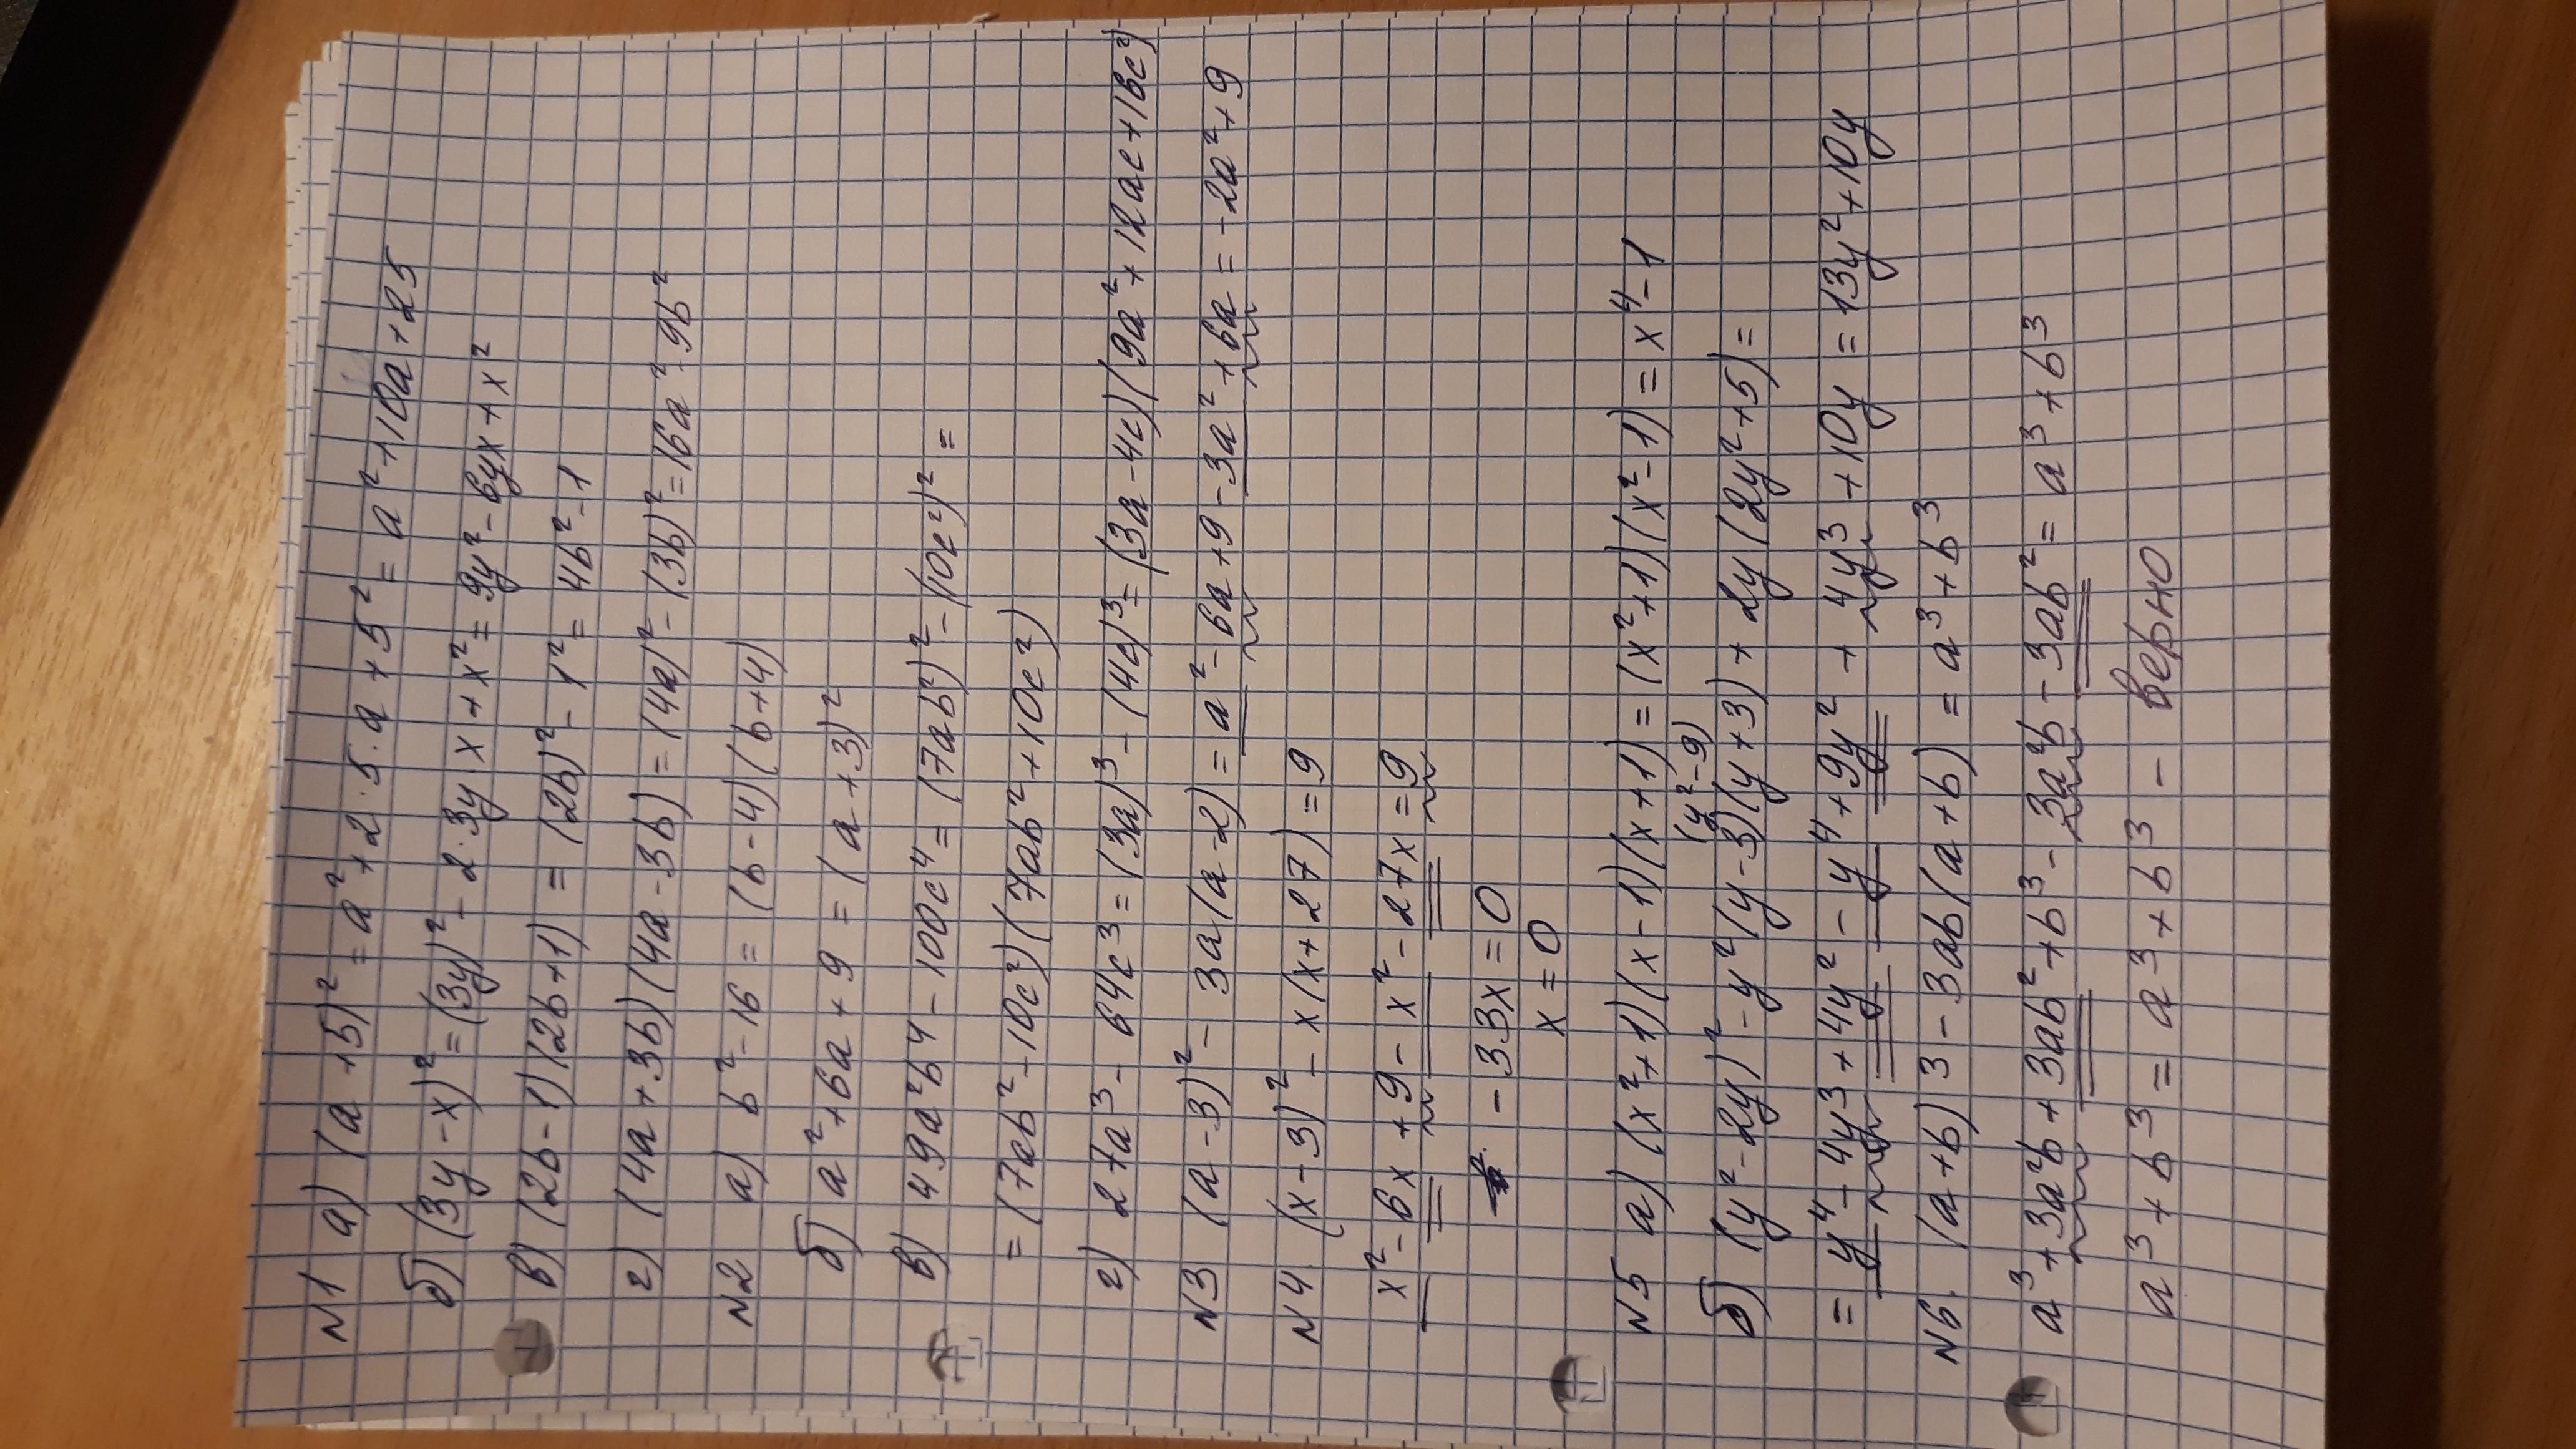 N1 а) (a+5)² = a² + 2·5·a + 5² = a² + 10a + 25
б) (3y - x)² = (3y)² - 2·3y·x + x² = 9y² - 6yx + x²
в) (2b-1)(2b+1) = (2b)² - 1² = 4b² - 1
г) (4a+3b)(4a-3b) = (4a)² - (3b)² = 16a² - 9b²
N2 а) b² - 16 = (b-4)(b+4)
б) a² + 6a + 9 = (a+3)²
в) 49a²b⁴ - 100c⁴ = (7ab²)² - (10c²)² =
= (7ab² - 10c²)(7ab² + 10c²)
г) 27a³ - 64c³ = (3a)³ - (4c)³ = (3a-4c)(9a² + 12ac + 16c²)
N3 (a-3)² - 3a(a-2) = a² - 6a + 9 - 3a² + 6a = -2a² + 9
N4. (x-3)² - x(x+27) = 9
x² - 6x + 9 - x² - 27x = 9
- 33x = 0
x = 0
N5 а) (x²+1)(x-1)(x+1) = (x²+1)(x²-1) = x⁴ - 1
(y²-9)
б) (y²-2y)² - y²(y-3)(y+3) + 2y(2y²+5) =
= y⁴ - 4y³ + 4y² - y⁴ + 9y² + 4y³ + 10y = 13y² + 10y
N6. (a+b)3 - 3ab(a+b) = a³ + b³
a³ + 3a²b + 3ab² + b³ - 3a²b - 3ab² = a³ + b³
a³ + b³ = a³ + b³ - верно